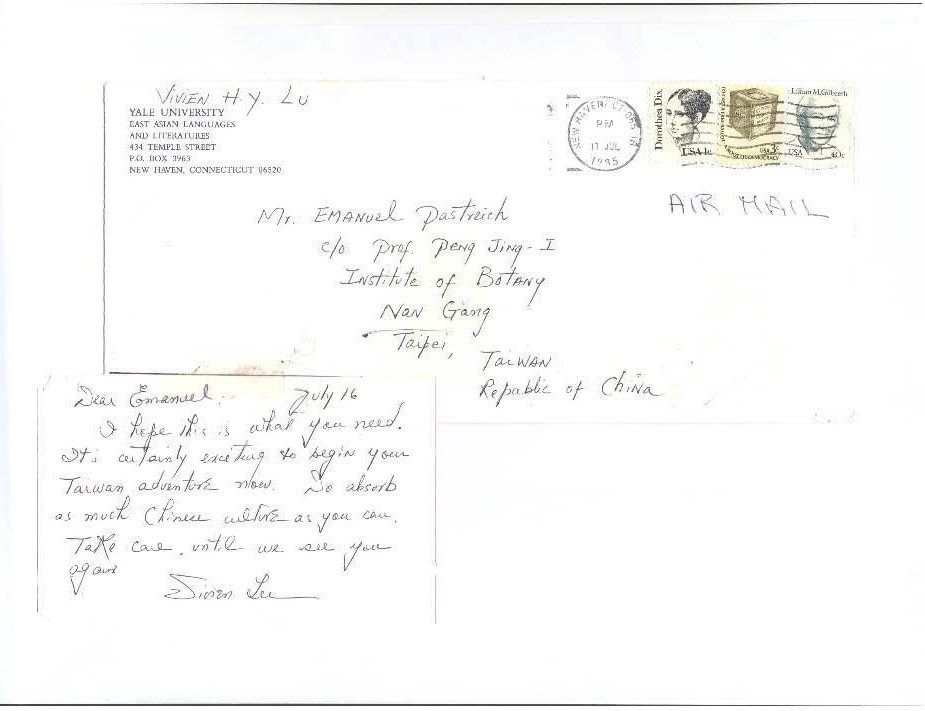 VIVIEN H.Y. LU
YALE UNIVERSITY
EAST ASIAN LANGUAGES
AND LITERATURES
434 TEMPLE STREET
P.O. BOX 3963
NEW HAVEN, CONNECTICUT 06520
NEW HAVEN, CT
PM
17 JUL
1985
Dorothea Dix
USA 1c
USA 3c
Lillian M. Gilbreth
USA 40c
AIR MAIL
Mr. EMANUEL Pastreich
c/o Prof. Peng Jing-I
Institute of Botany
Nan Gang
Taipei,
TAIWAN
Republic of China
Dear Emanuel, July 16
I hope this is what you need.
It's certainly exciting to begin your
Taiwan adventure now. Do absorb
as much Chinese culture as you can.
Take care, until we see you
again
Vivien Lu